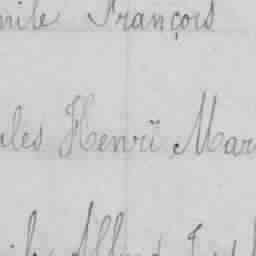 mile François
ales Henri Mar
Alfred